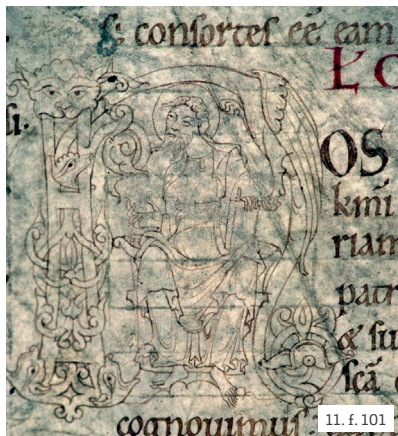 s; consortes eē eam
OS
km̄i
riam
patr
& su
scā
cognouimus
11. f. 101